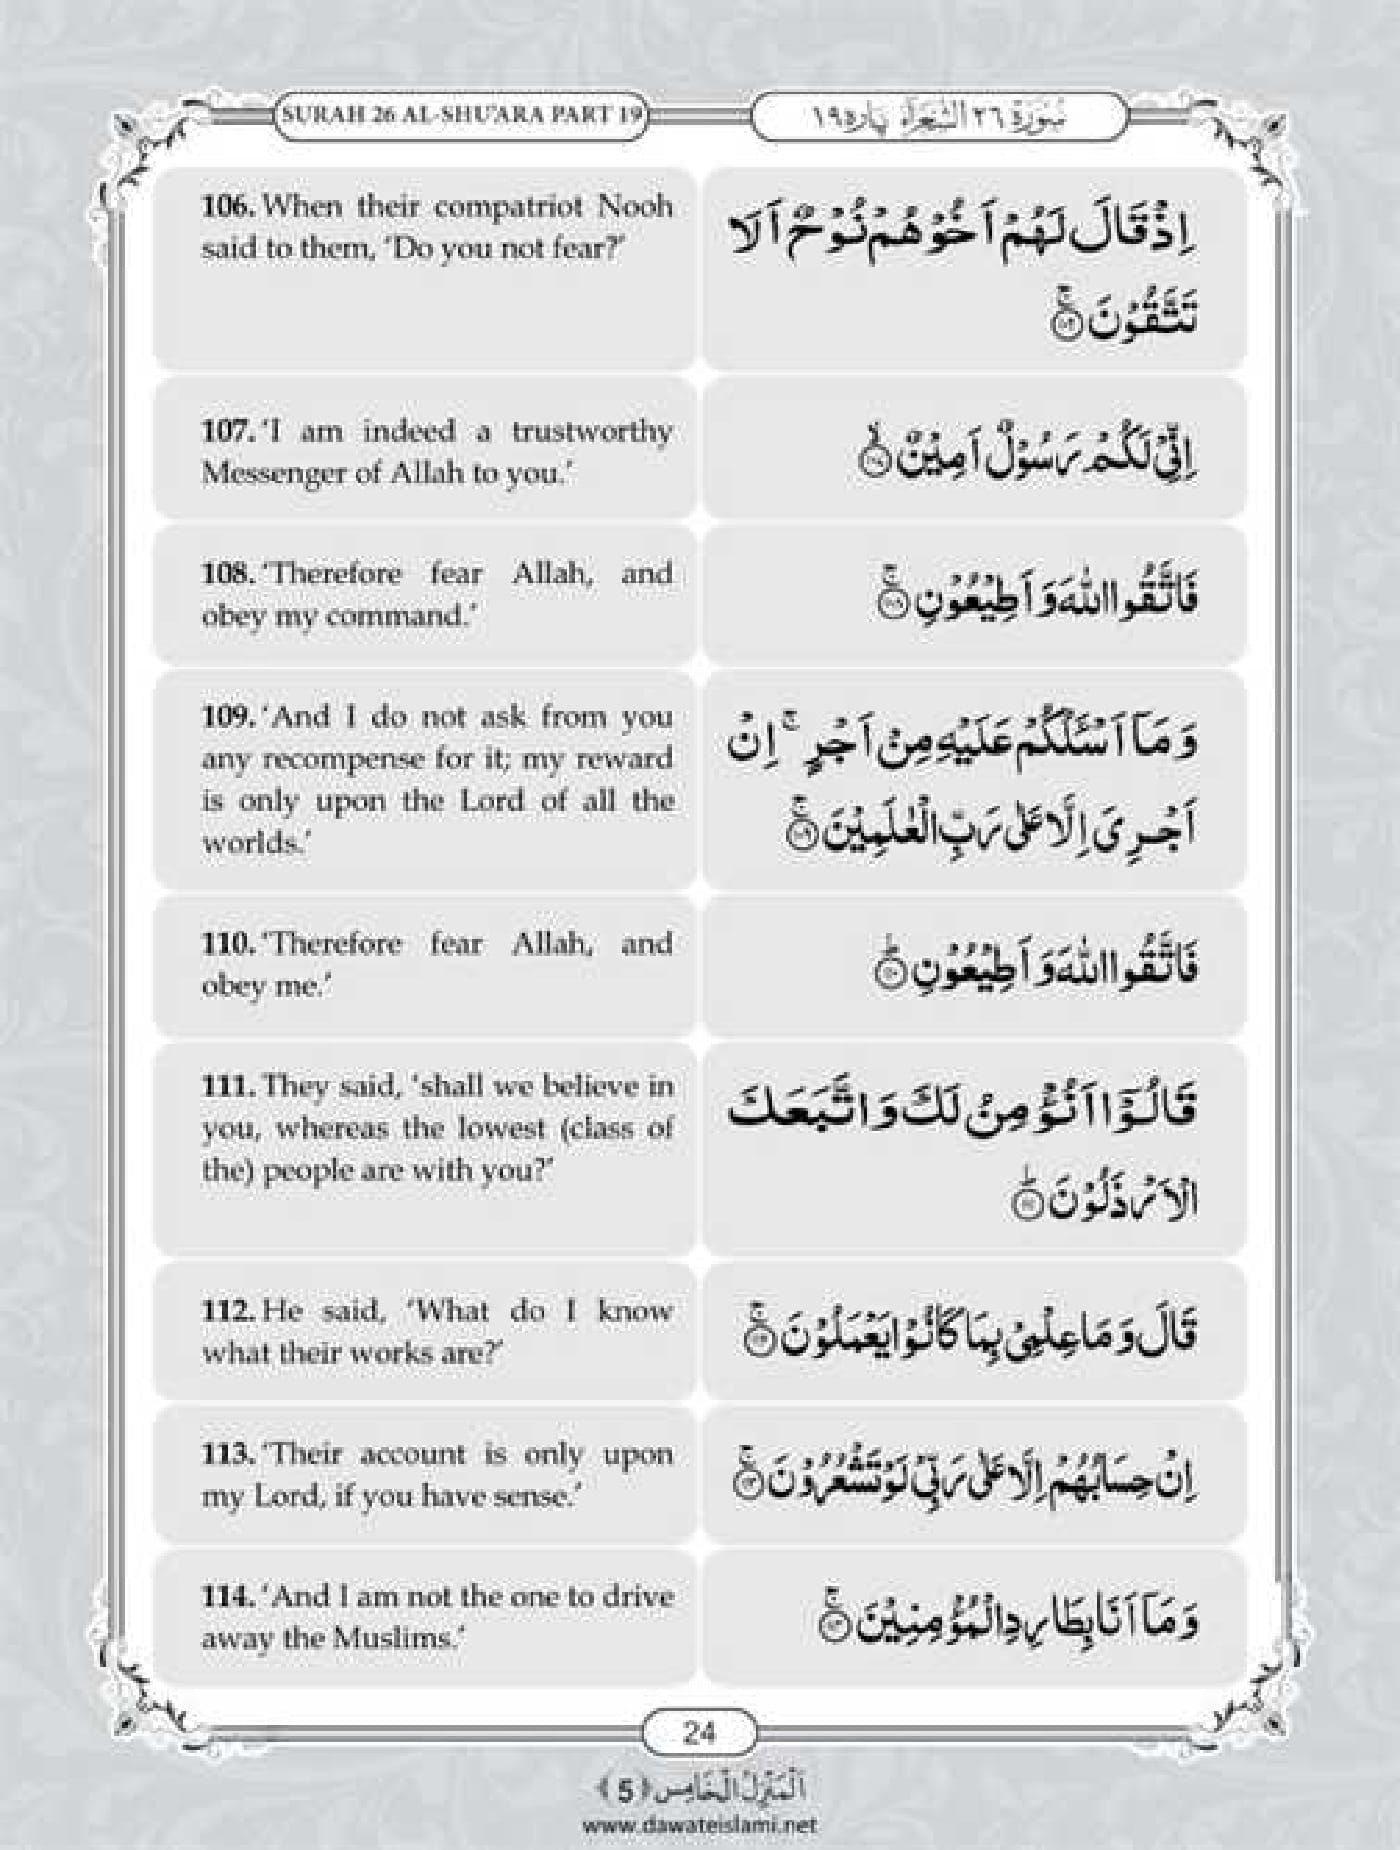 SURAH 26 AL-SHU'ARA PART 19
سُوْرَةُ ٢٦ الشُّعَرَآء پاره ١٩
106. When their compatriot Nooh
said to them, ‘Do you not fear?’
اِذْ قَالَ لَهُمْ اَخُوْهُمْ نُوْحٌ اَلَا
تَتَّقُوْنَ ۚ﴿۱۰۶﴾
107. ‘I am indeed a trustworthy
Messenger of Allah to you.’
اِنِّیْ لَكُمْ رَسُوْلٌ اَمِیْنٌ ۙ﴿۱۰۷﴾
108. ‘Therefore fear Allah, and
obey my command.’
فَاتَّقُوا اللّٰهَ وَ اَطِیْعُوْنِ ۚ﴿۱۰۸﴾
109. ‘And I do not ask from you
any recompense for it; my reward
is only upon the Lord of all the
worlds.’
وَ مَاۤ اَسْـَٔلُكُمْ عَلَیْهِ مِنْ اَجْرٍ ۚ اِنْ
اَجْرِیَ اِلَّا عَلٰی رَبِّ الْعٰلَمِیْنَ ۚ﴿۱۰۹﴾
110. ‘Therefore fear Allah, and
obey me.’
فَاتَّقُوا اللّٰهَ وَ اَطِیْعُوْنِ ؕ﴿۱۱۰﴾
111. They said, ‘shall we believe in
you, whereas the lowest (class of
the) people are with you?’
قَالُوْۤا اَنُؤْمِنُ لَكَ وَ اتَّبَعَكَ
الْاَرْذَلُوْنَ ؕ﴿۱۱۱﴾
112. He said, ‘What do I know
what their works are?’
قَالَ وَ مَا عِلْمِیْ بِمَا كَانُوْا یَعْمَلُوْنَ ۚ﴿۱۱۲﴾
113. ‘Their account is only upon
my Lord, if you have sense.’
اِنْ حِسَابُهُمْ اِلَّا عَلٰی رَبِّیْ لَوْ تَشْعُرُوْنَ ۚ﴿۱۱۳﴾
114. ‘And I am not the one to drive
away the Muslims.’
وَ مَاۤ اَنَا بِطَارِدِ الْمُؤْمِنِیْنَ ۚ﴿۱۱۴﴾
24
اَلْمَنْزِلُ الْخَامِس ﴿5﴾
www.dawateislami.net